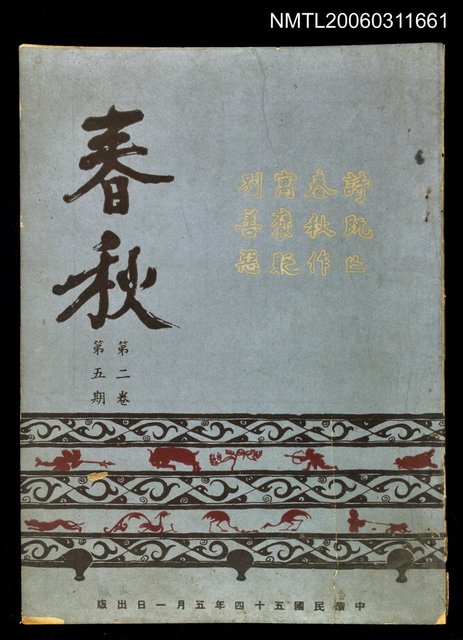 NMTL20060311661
春秋
第二卷
第五期
詩既亡
春秋作
寓襃貶
別善惡
中華民國五十四年五月一日出版